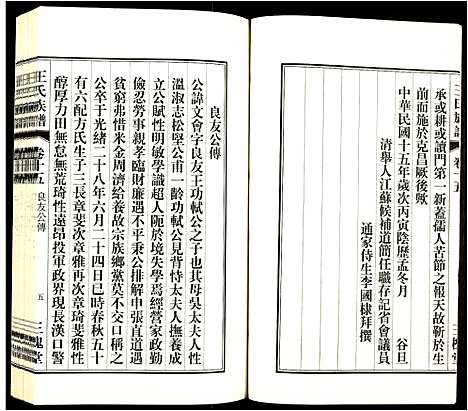 承或耕或讀門第一新蓋儒人苦節之報天故靳於生
前而施於克昌厥後歟
中華民國十五年歲次丙寅陰歷孟冬月　穀旦
清舉人江蘇候補道簡任職存記省會議員
通家侍生李國棣拜撰
王氏族譜　卷十五　良友公傳　五　三槐堂
良友公傳
公諱文會字良友王功軾公之子也其母吳太夫人性
溫淑志松堅公甫一齡功軾公見背恃太夫人撫養成
立公賦性明敏學識超人阨於境失學焉經營家政勤
儉忍勞事親孝臨財廉遇不平秉公排解中張直道遇
貧窮弗惜米金周濟給養故宗族鄉黨莫不交口稱之
公卒于光緒二十八年六月二十四日巳時春秋五十
有六配方氏生子二長章斐次章雅再次章琦斐雅性
醇厚力田無怠無荒琦性遠昂投軍政界現長漢口警